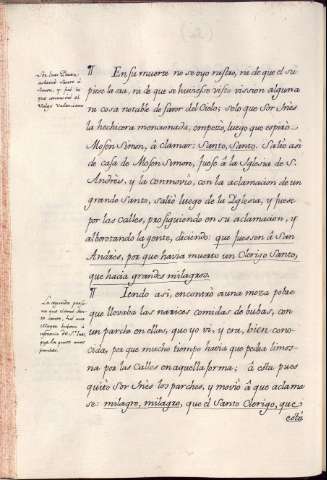 Sor Ines Pinta,
aclamó Santo â
Simon, y fué la
que conmovió al
Vulgo Valenciano
¶ En su muerte no se oyo rustao, ni de que el su
piese la cia, ni de que se huviesse visto vission alguna
ni cosa notable de favor del Cielo; solo que Sor Inès
la hechicera mencionada, empezò, luego que espirò
Mosen Simon, â clamar: Santo, Santo. Saliò assi
de casa de Mosen Simon, fuese â la Iglesia de S.
Andrès, y la conmoviò, con la aclamacion de un
grande Santo, saliò luego de la Iglesia, y fuese
por las Calles, prosiguiendo en su aclamacion, y
alborotando la gente, diciendo: que fuessen â San
Andrès, por que havia muerto un Clerigo Santo,
que hacia grandes milagros.
La segunda
que
¶ Iendo assi, encontrò a una moza pobre
que llevaba las narices comidas de bubas, con
un parcho en ellas, que yo vi, y era, bien cono-
cida, por que mucho tiempo havia que pedia limos-
na por las Calles en aquella forma; â esta pues
quitò Sor Inès los parches, y moviò â que aclama
se: milagro, milagro, que el Santo Clerigo, que
està